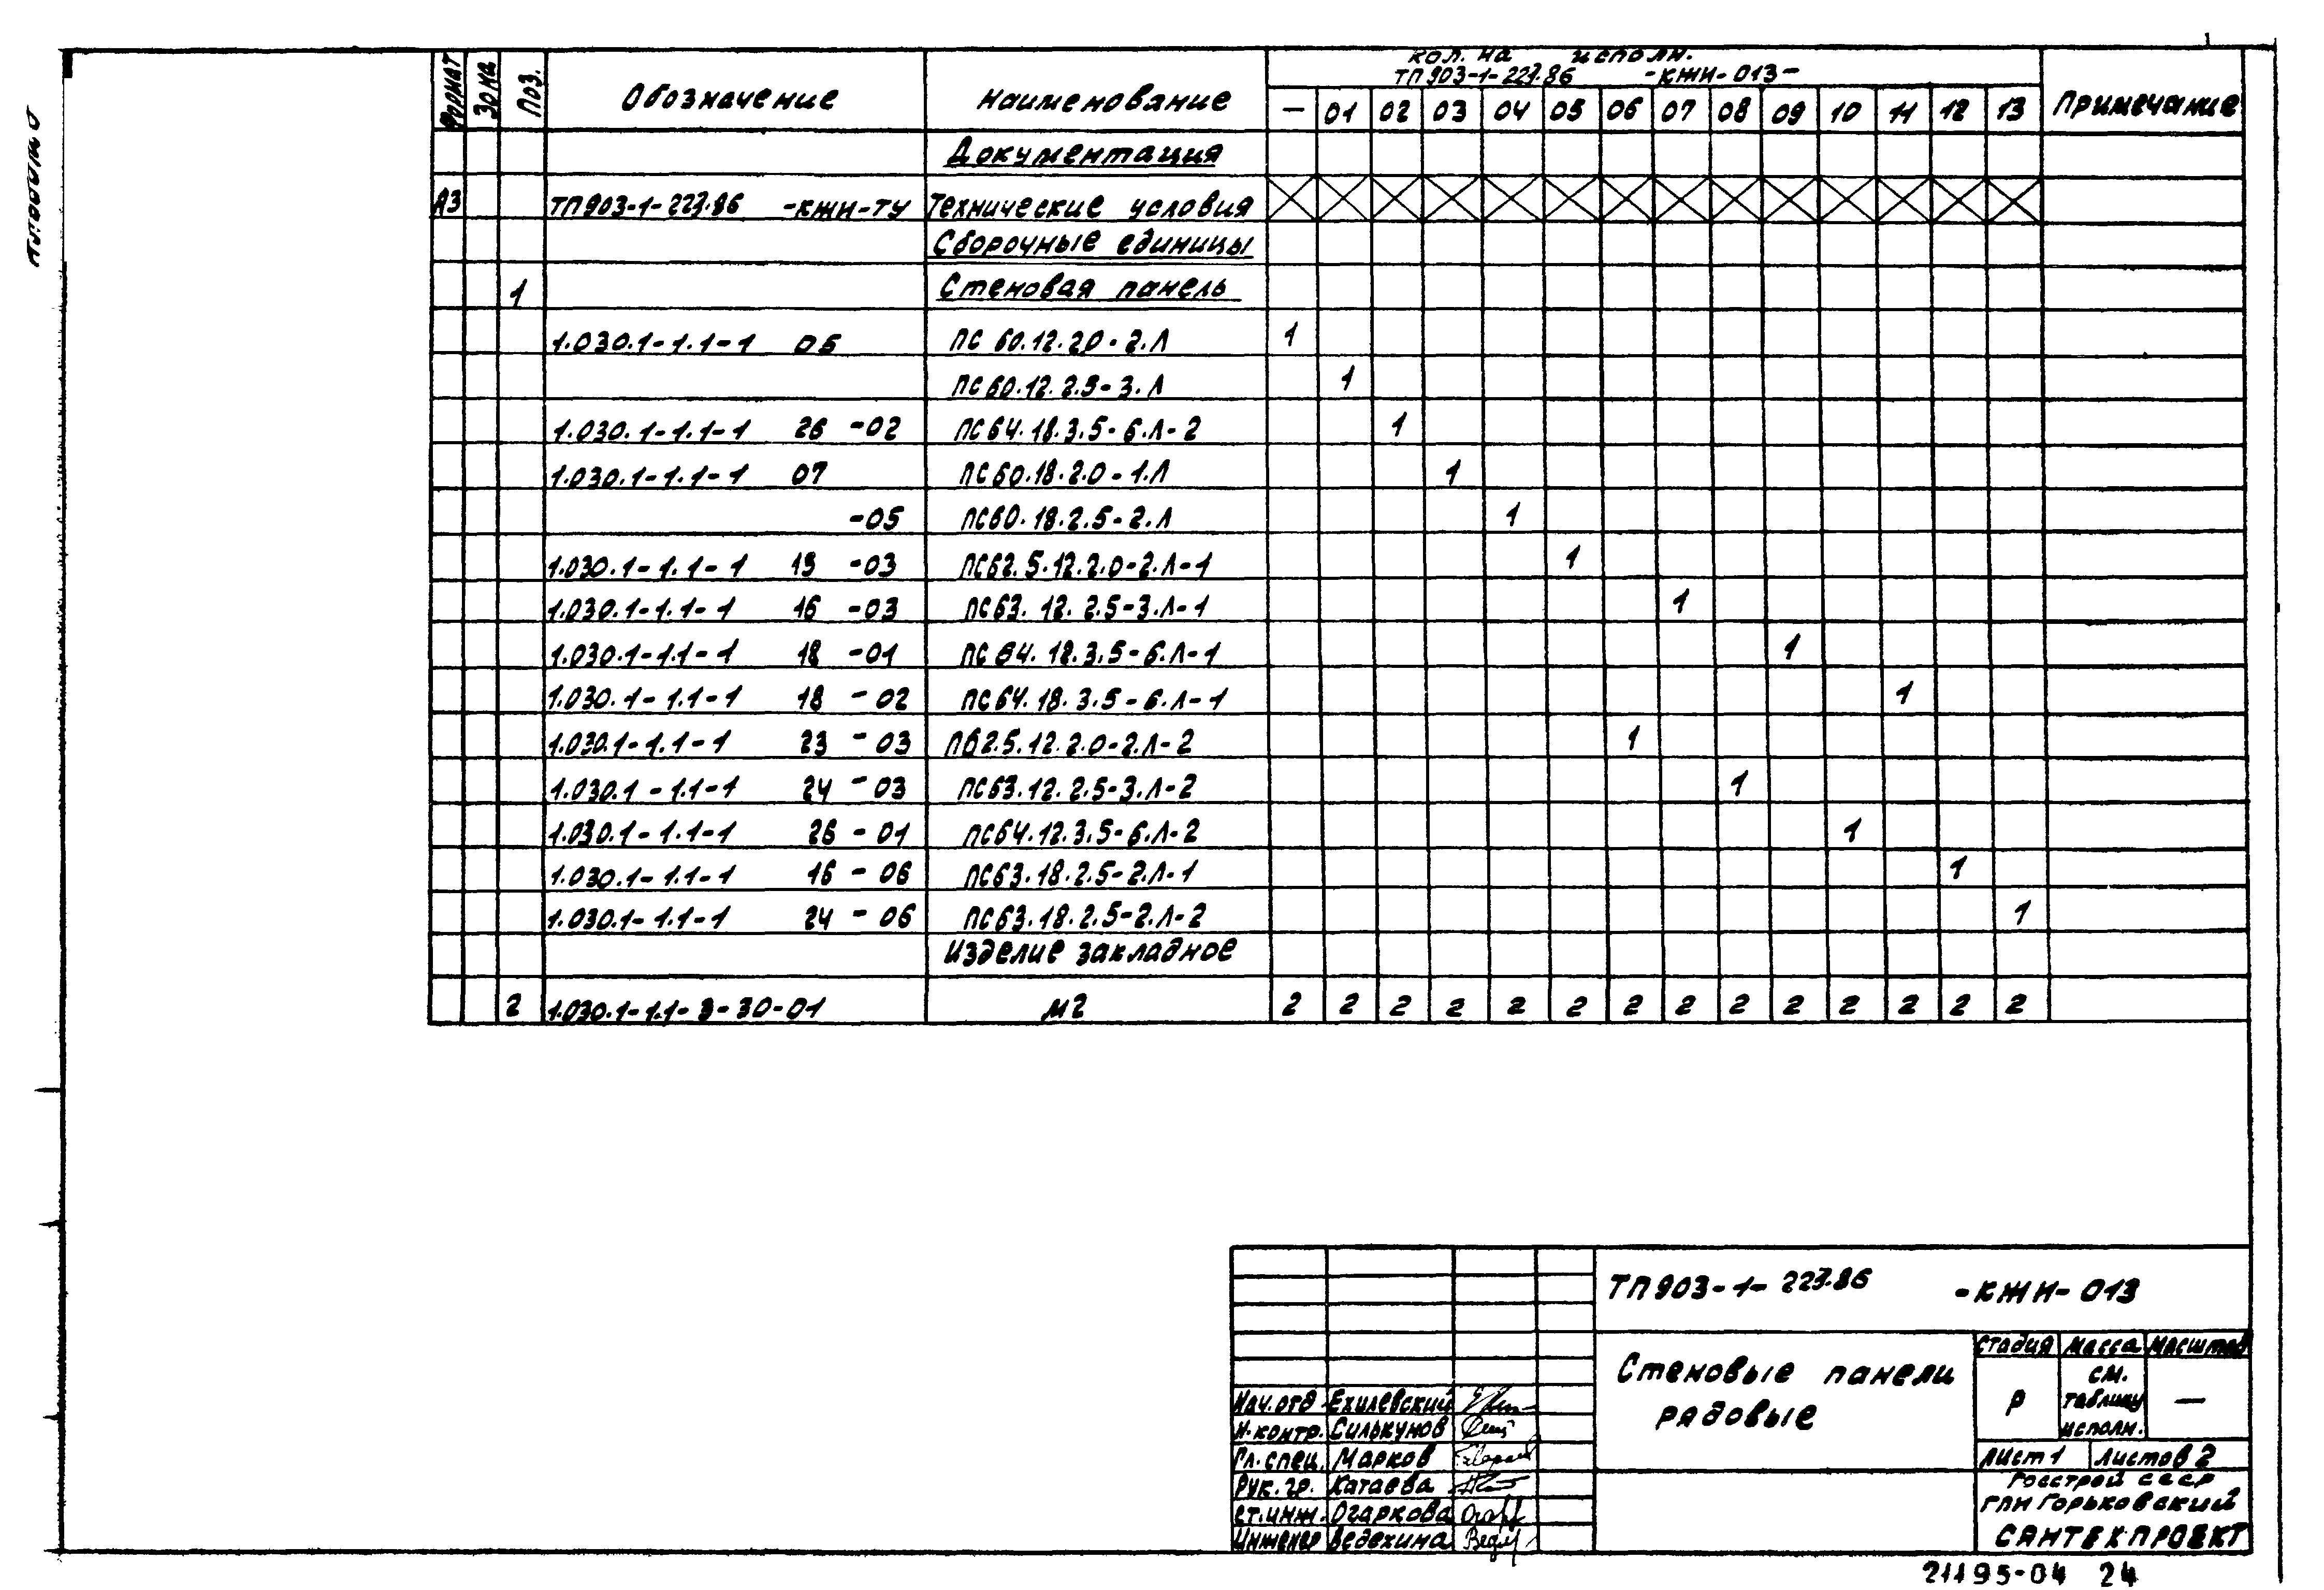 Альбом 9
Формат Зона Поз. Обозначение Наименование Кол. на исполн. ТП 903-1-227.86 -КЖИ-013- Примечание
— 01 02 03 04 05 06 07 08 09 10 11 12 13
Документация
А3 ТП903-1-227.86 -КЖИ-ТУ Технические условия
Сборочные единицы
1 Стеновая панель
1.030.1-1.1-1 05 ПС 60.12.2.0-2.Л 1
ПС60.12.2.5-3.Л 1
1.030.1-1.1-1 26 -02 ПС64.18.3.5-6.Л-2 1
1.030.1-1.1-1 07 ПС60.18.2.0-1.Л 1
-05 ПС60.18.2.5-2.Л 1
1.030.1-1.1-1 15 -03 ПС62.5.12.2.0-2.Л-1 1
1.030.1-1.1-1 16 -03 ПС63.12.2.5-3.Л-1 1
1.030.1-1.1-1 18 -01 ПС64.12.3.5-6.Л-1 1
1.030.1-1.1-1 18 -02 ПС64.18.3.5-6.Л-1 1
1.030.1-1.1-1 23 -03 П62.5.12.2.0-2.Л-2 1
1.030.1-1.1-1 24 -03 ПС63.12.2.5-3.Л-2 1
1.030.1-1.1-1 26 -01 ПС64.12.3.5-6.Л-2 1
1.030.1-1.1-1 16 -06 ПС63.18.2.5-2.Л-1 1
1.030.1-1.1-1 24 -06 ПС63.18.2.5-2.Л-2 1
Изделие закладное
2 1.030.1-1.1-3-30-01 М2 2 2 2 2 2 2 2 2 2 2 2 2 2 2
ТП903-1-227.86 -КЖИ-013
Стеновые панели
рядовые
Стадия Масса Масштаб
Р см. таблицу исполн. —
Лист 1 Листов 2
Нач.отд Ехилевский
Н.контр. Силькунов
Гл.спец. Марков
Рук.гр. Катаева
Ст.инж. Огаркова
Инженер Ведехина
Госстрой СССР
ГПИ Горьковский
САНТЕХПРОЕКТ
21195-04 24